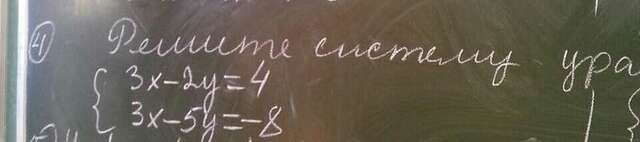 4) Решите систему ура
{ 3x-2y=4
3x-5y=-8